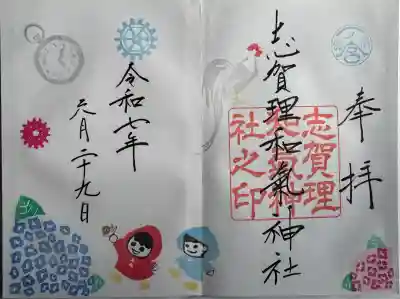 奉拝
志賀理和氣神社
志賀理
和氣神
社之印
令和七年
六月二十九日